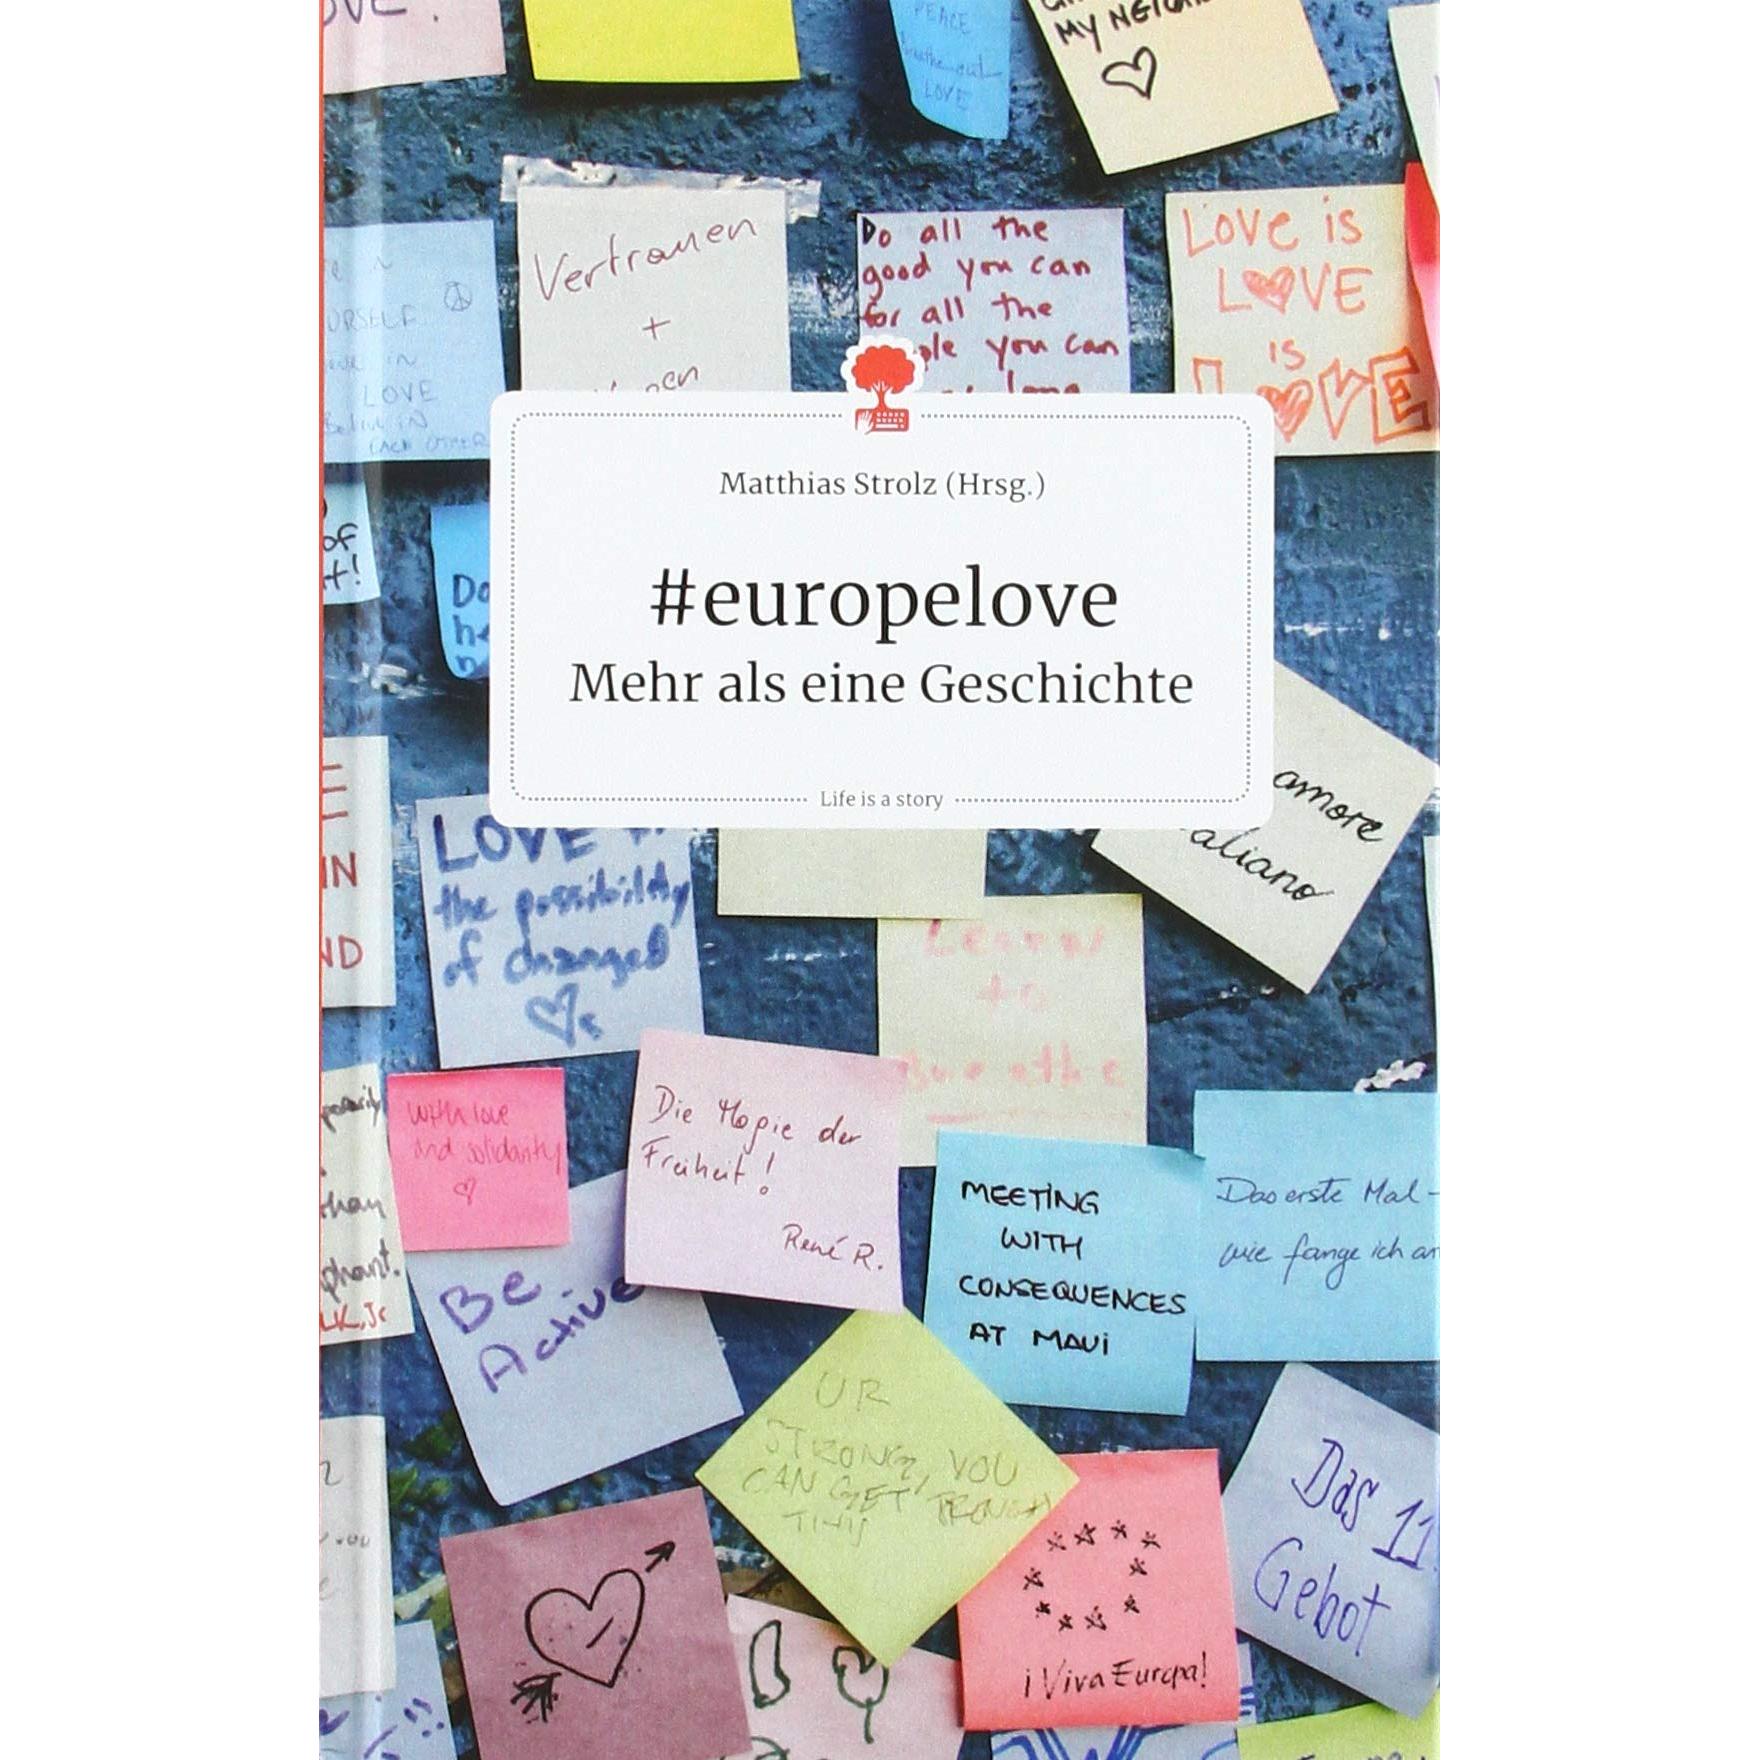 OVE!
PEACE
Breathe out
LOVE
MY
Vertrauen
+
Do all the
good you can
for all the
you can
long
LOVE is
LOVE
is
LOVE
LOVE
Believe IN
EACH OTHER
of
Matthias Strolz (Hrsg.)
#europelove
Mehr als eine Geschichte
Life is a story
Do
amore
aliano
LOVE
the possibility
of changes
IN
ND
Learn
to
Breathe
with love
and solidarity
Die Magie der
Freiheit!
René R.
MEETING
WITH
CONSEQUENCES
AT MAUI
Das erste Mal -
wie fange ich an
than
phant.
LK, Jr
Be
Active
UR
STRONG, YOU
CAN GET TROUGH
THIS
Das 11.
Gebot
¡Viva Europa!